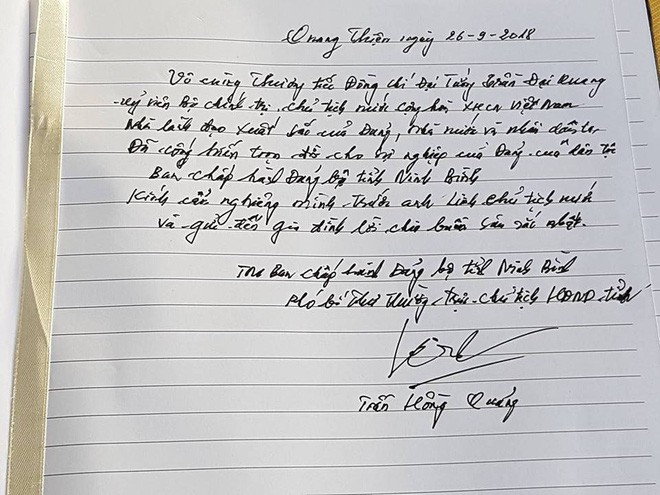 Quang Thiện ngày 26-9-2018
Vô cùng Thương tiếc Đồng chí Đại Tướng Trần Đại Quang
uỷ viên Bộ chính trị, chủ tịch nước cộng hoà XHCN Việt Nam
Nhà lãnh đạo xuất sắc của Đảng, Nhà nước và nhân dân ta
Đã cống hiến trọn đời cho sự nghiệp của Đảng của dân tộc
Ban chấp hành Đảng bộ tỉnh Ninh Bình
Kính cẩn nghiêng mình trước anh linh chủ tịch nước
và gửi đến gia đình lời chia buồn sâu sắc nhất.
TM Ban chấp hành Đảng bộ tỉnh Ninh Bình
Phó bí Thư Thường trực - chủ tịch HĐND tỉnh
Trần Hồng Quảng